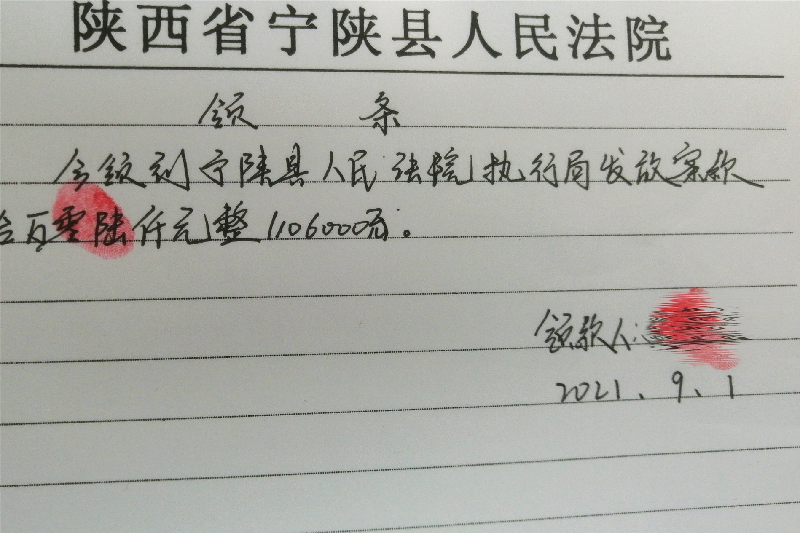 陕西省宁陕县人民法院
领 条
今领到宁陕县人民法院执行局发放案款
拾万零陆仟元整(106000元)。
领款人:
2021.9.1